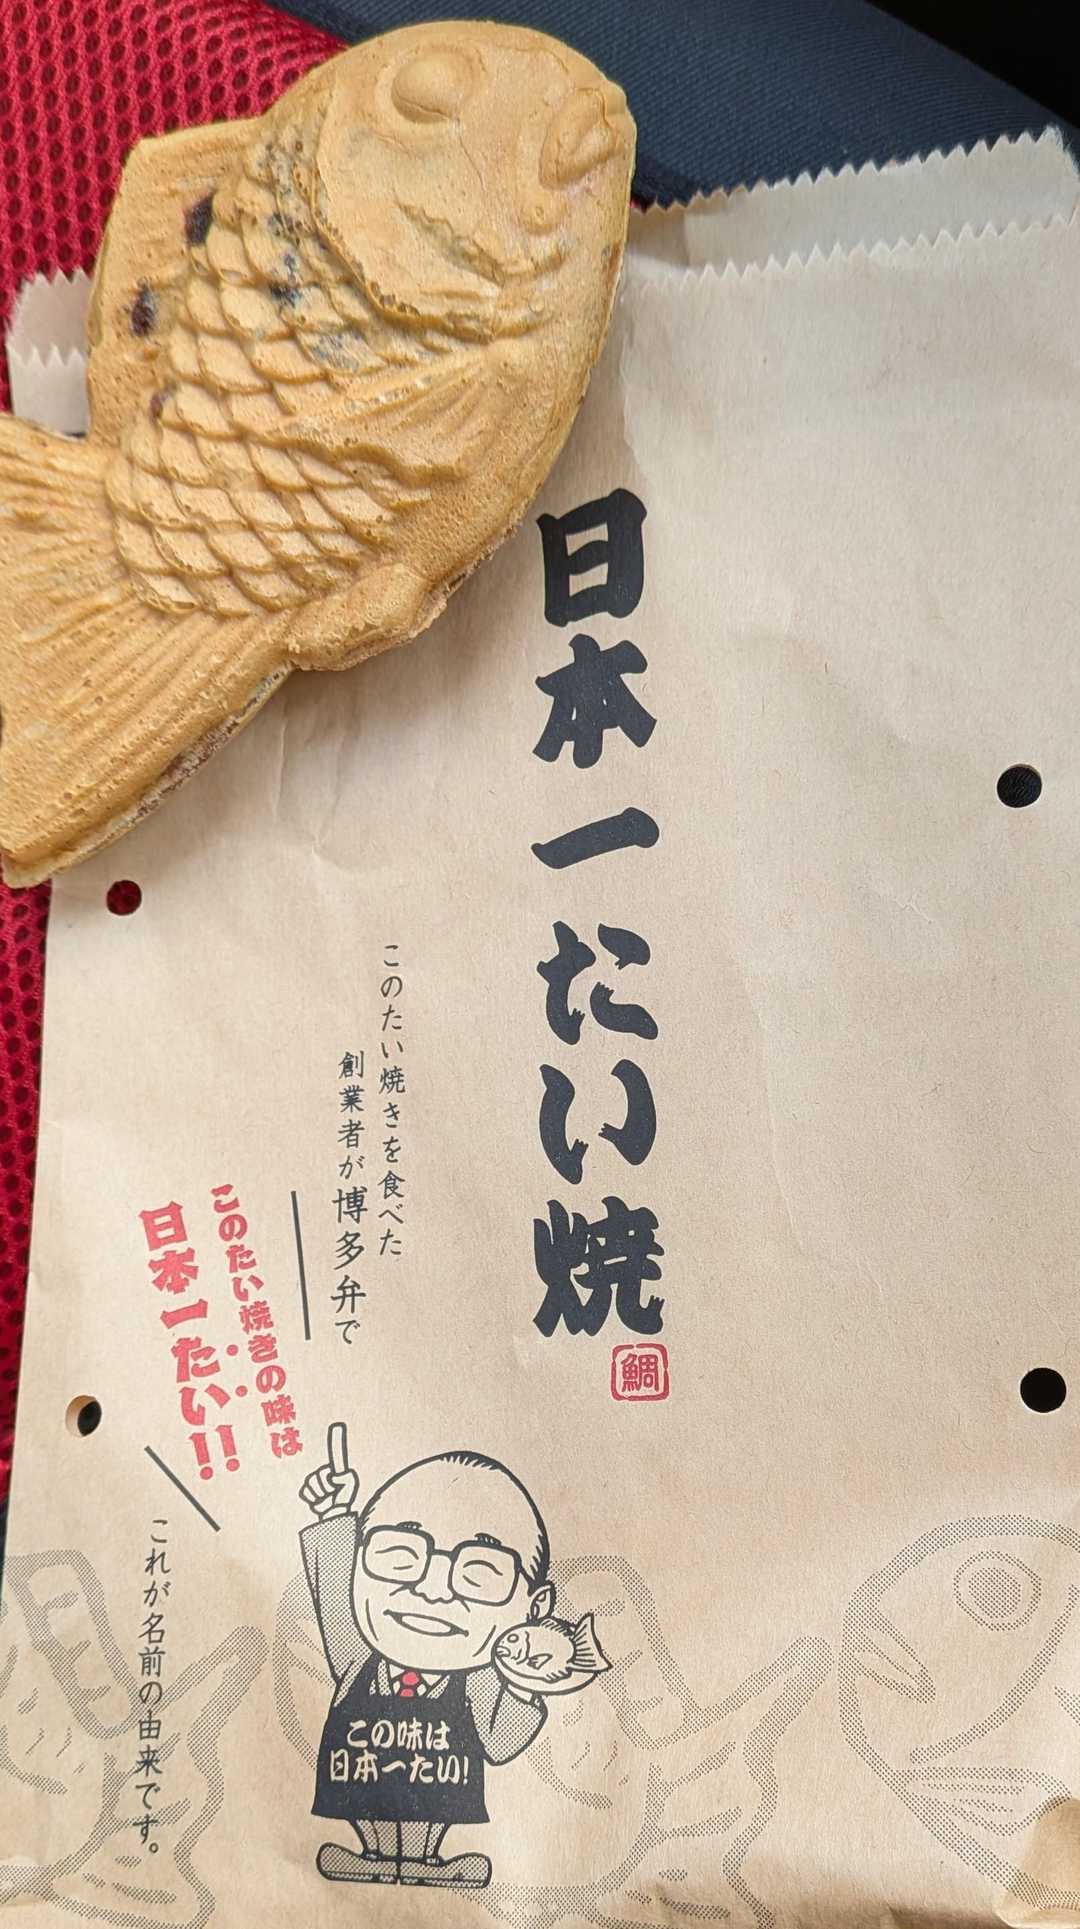 日本一たい焼
鯛
このたい焼きを食べた
創業者が博多弁で
このたい焼きの味は
日本一たい!!
これが名前の由来です。
この味は
日本一たい!